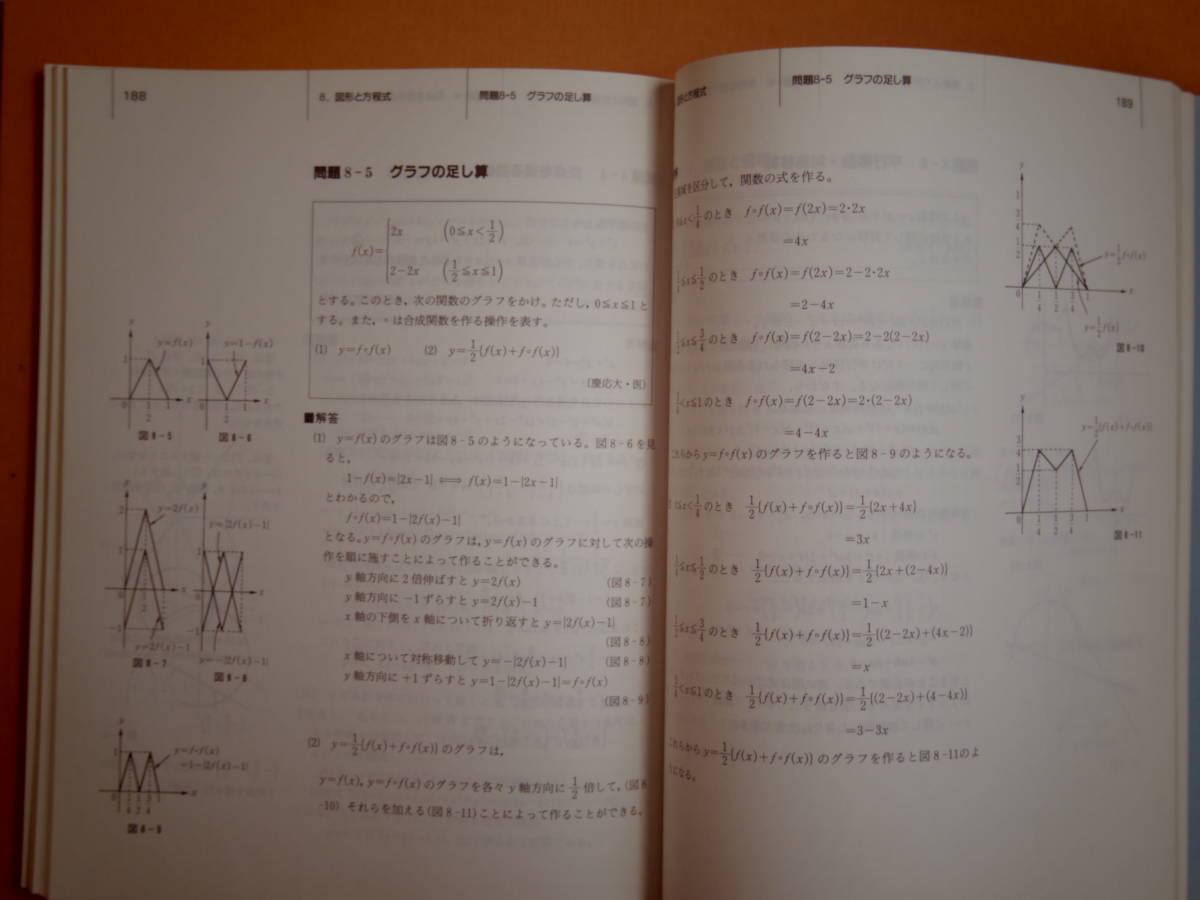 188
8. 図形と方程式
問題8-5 グラフの足し算
問題8-5 グラフの足し算
f(x)={2x (0≦x<1/2)
2-2x (1/2≦x≦1)
とする。このとき,次の関数のグラフをかけ。ただし,0≦x≦1と
する。また,∘は合成関数を作る操作を表す。
(1) y=f∘f(x) (2) y=1/2{f(x)+f∘f(x)}
(慶応大・医)
■解答
(1) y=f(x)のグラフは図8-5のようになっている。図8-6を見
ると,
1-f(x)=|2x-1| ⟺ f(x)=1-|2x-1|
とわかるので,
f∘f(x)=1-|2f(x)-1|
となる。y=f∘f(x)のグラフは,y=f(x)のグラフに対して次の操
作を順に施すことによって作ることができる。
y軸方向に2倍伸ばすと y=2f(x) (図8-7)
y軸方向に-1ずらすと y=2f(x)-1 (図8-7)
x軸の下側をx軸について折り返すと y=|2f(x)-1|
(図8-8)
x軸について対称移動して y=-|2f(x)-1| (図8-8)
y軸方向に+1ずらすと y=1-|2f(x)-1|=f∘f(x)
(図8-9)
(2) y=1/2{f(x)+f∘f(x)}のグラフは,
y=f(x), y=f∘f(x)のグラフを各々y軸方向に1/2倍して,(図8
-10) それらを加える(図8-11)ことによって作ることができる。
y=f(x)
図8-5
y=1-f(x)
図8-6
y=2f(x)
y=2f(x)-1
図8-7
y=|2f(x)-1|
y=-|2f(x)-1|
図8-8
y=f∘f(x)
=1-|2f(x)-1|
図8-9
問題8-5 グラフの足し算
189
を区分して,関数の式を作る。
のとき f∘f(x)=f(2x)=2・2x
=4x
のとき f∘f(x)=f(2x)=2-2・2x
=2-4x
のとき f∘f(x)=f(2-2x)=2-2(2-2x)
=4x-2
<x≦1のとき f∘f(x)=f(2-2x)=2・(2-2x)
=4-4x
これらからy=f∘f(x)のグラフを作ると図8-9のようになる。
のとき 1/2{f(x)+f∘f(x)}=1/2{2x+4x}
=3x
のとき 1/2{f(x)+f∘f(x)}=1/2{2x+(2-4x)}
=1-x
のとき 1/2{f(x)+f∘f(x)}=1/2{(2-2x)+(4x-2)}
=x
<x≦1のとき 1/2{f(x)+f∘f(x)}=1/2{(2-2x)+(4-4x)}
=3-3x
これらからy=1/2{f(x)+f∘f(x)}のグラフを作ると図8-11のよ
うになる。
y=1/2f∘f(x)
y=1/2f(x)
図8-10
y=1/2{f(x)+f∘f(x)}
図8-11